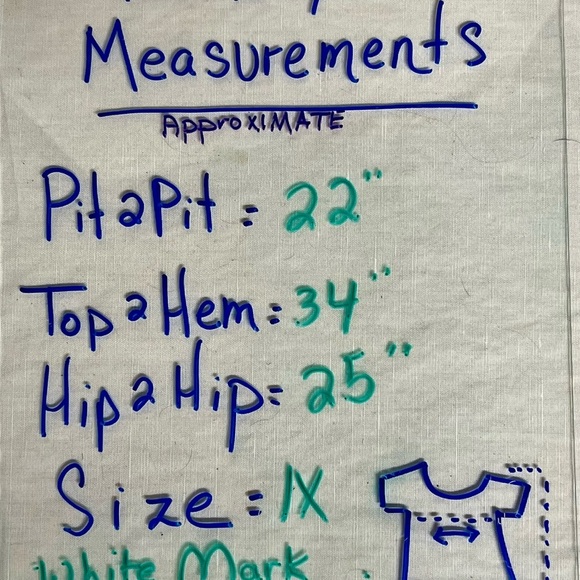 Measurements
ApproxIMATE
Pit2Pit = 22"
Top2Hem = 34"
Hip2Hip = 25"
Size = 1X
White Mark